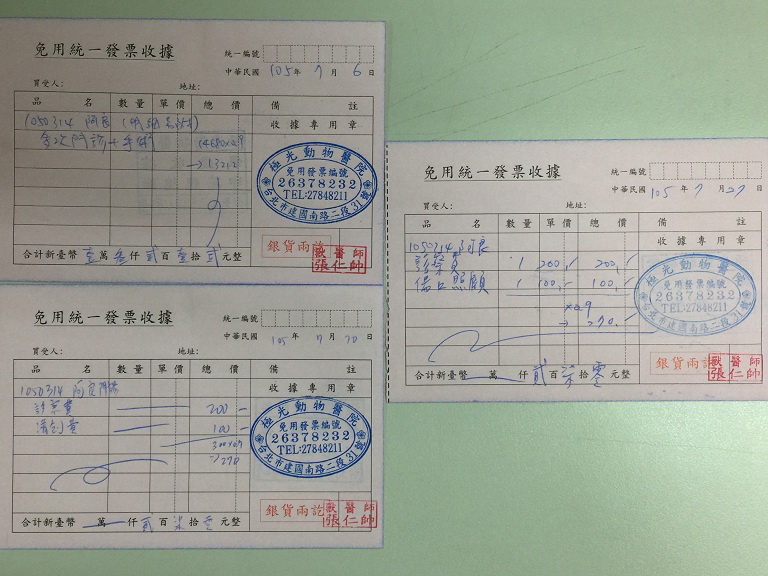 免用統一發票收據
統一編號
中華民國 105 年 7 月 6 日
買受人: 地址:
品名 數量 單價 總價 備註
1050314 阿良
手術
收據專用章
→13212
極光動物醫院
免用發票編號
26378232
TEL:27848211
台北市建國南路二段31號
銀貨兩訖
獸醫師
張仁帥
合計新臺幣 壹萬 叁仟 貳百 壹拾 貳元整
免用統一發票收據
統一編號
中華民國 105 年 7 月 20 日
買受人: 地址:
品名 數量 單價 總價 備註
1050314
收據專用章
診察費 200
清創費 100
300×0.9
→270
極光動物醫院
免用發票編號
26378232
TEL:27848211
台北市建國南路二段31號
銀貨兩訖
獸醫師
張仁帥
合計新臺幣 萬 仟 貳百 柒拾 元整
免用統一發票收據
統一編號
中華民國 105 年 7 月 27 日
買受人: 地址:
品名 數量 單價 總價 備註
1050314 阿良
收據專用章
診察費 1 200 200
傷口照顧 1 100 100
×0.9
→270
極光動物醫院
免用發票編號
26378232
TEL:27848211
台北市建國南路二段31號
銀貨兩訖
獸醫師
張仁帥
合計新臺幣 萬 仟 貳百 柒拾 零元整